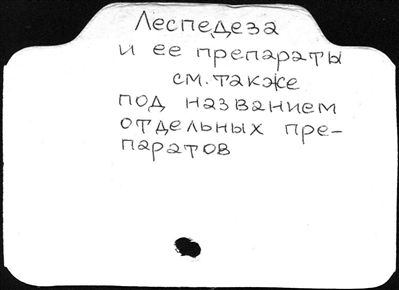 Леспедеза
и ее препараты
см. также
под названием
отдельных пре-
паратов